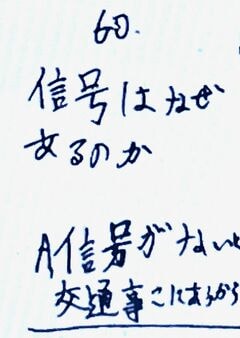 60.
信号はなぜ
あるのか
A,信号がないと
交通事こにあうから